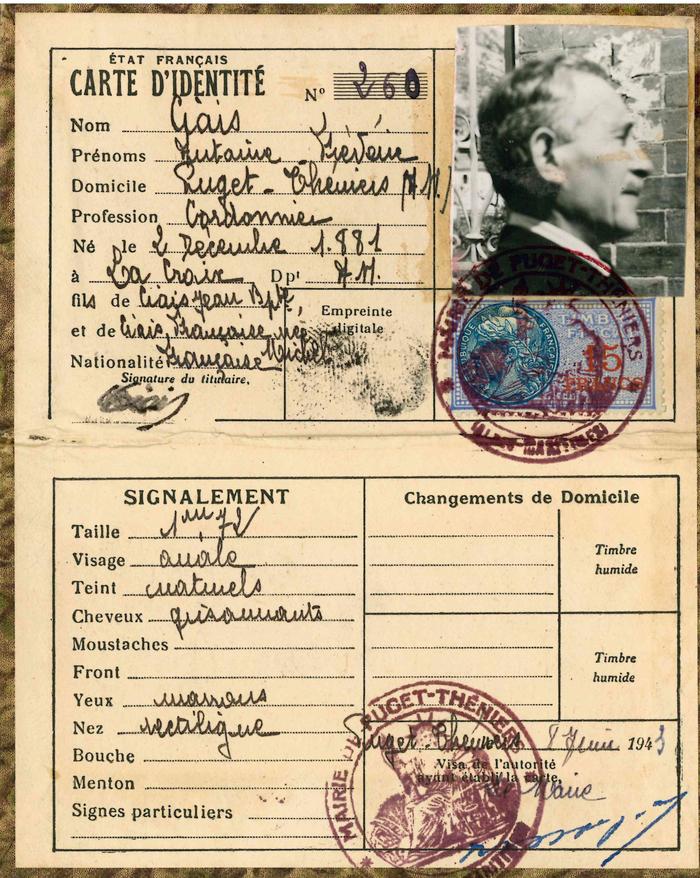 ÉTAT FRANÇAIS
CARTE D'IDENTITÉ
N° 260
Nom Giais
Prénoms Antoine Frédéric
Domicile Puget-Théniers (A.M.)
Profession Cordonnier
Né le 2 Décembre 1.881
à La Croix Dpt A.M.
fils de Giais Jean Bpte,
et de Giais Françoise née Michel
Nationalité Française
Signature du titulaire,
Giais
Empreinte
digitale
MAIRIE DE PUGET-THÉNIERS
(ALPES-MARITIMES)
RÉPUBLIQUE FRANÇAISE
TIMBRE
FISCAL
15
FRANCS
SIGNALEMENT
Taille 1m72
Visage ovale
Teint naturels
Cheveux grisonnants
Moustaches
Front
Yeux marrons
Nez rectiligne
Bouche
Menton
Signes particuliers
Changements de Domicile
Timbre
humide
Timbre
humide
Puget-Théniers 1943
Visa de l'autorité
ayant établi la carte,
Le Maire
MAIRIE DE PUGET-THÉNIERS